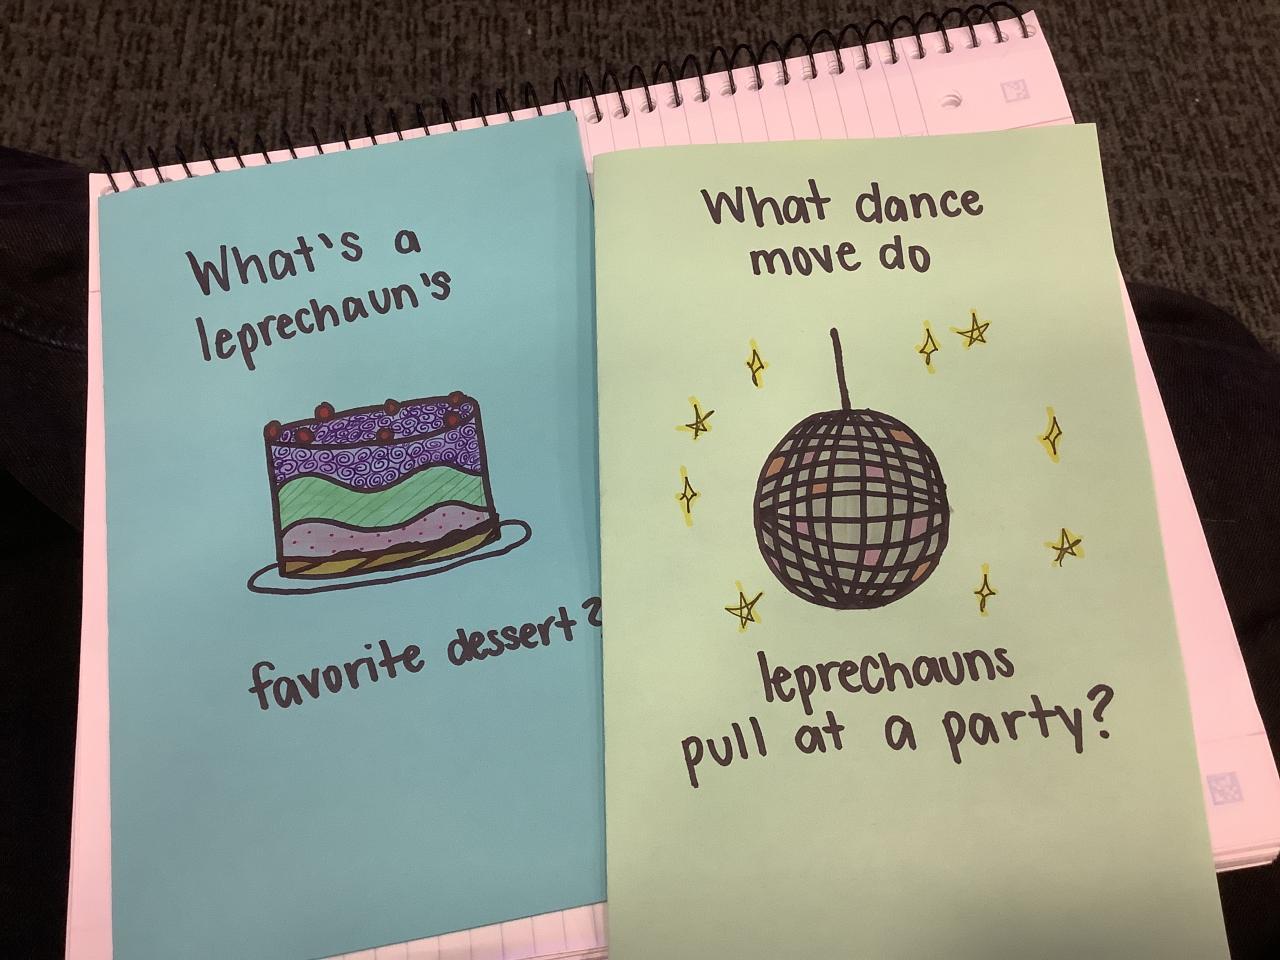 What's a
leprechaun's
favorite dessert?
What dance
move do
leprechauns
pull at a party?